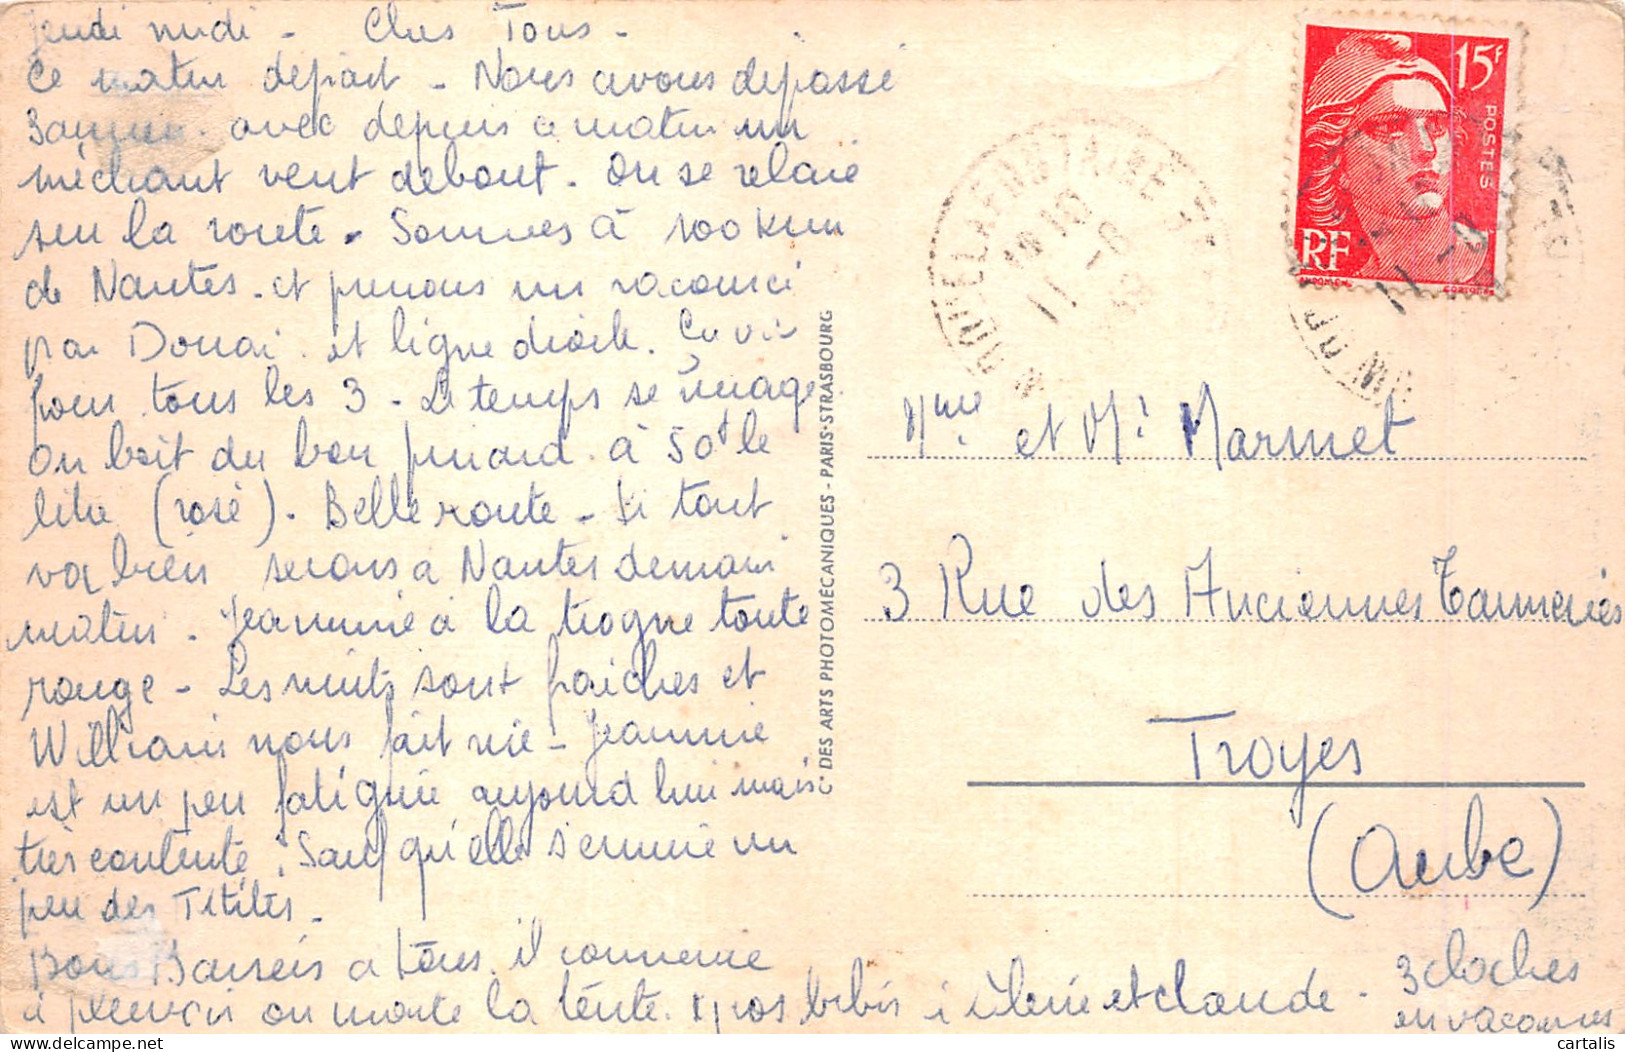 Jeudi midi - Chers Tous -
Ce matin départ - Nous avons dépassé
avec depuis ce matin un
méchant vent debout. On se relaie
sur la route. Sommes à 100 km
de Nantes. et prenons un raccourci
par Douai. et ligne droite. Ça va
pour tous les 3 - Le temps se nuage
On boit du bon pinard à 50f le
litre (rosé). Belle route - Si tout
va bien serons à Nantes demain
matin. Jeannine a la trogne toute
rouge - Les nuits sont fraiches et
William nous fait rire - Jeannine
est un peu fatiguée aujourd hui mais
très contente. Sauf qu'elle s'ennuie un
peu des Titites.
Bons Baisers a tous. il commence
à pleuvoir on monte la tente.
et Claude - 3 cloches
en vacances
Mme et Mr Marmet
3 Rue des Anciennes Tanneries
Troyes
(Aube)
C DES ARTS PHOTOMÉCANIQUES - PARIS-STRASBOURG
15F
POSTES
RF
GANDON
CORTOT
11 -8
11 -8
cartalis